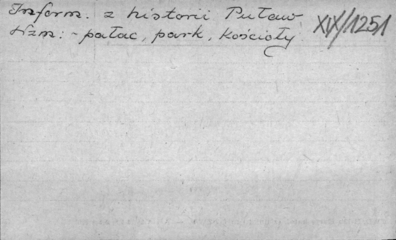 Inform. z historii Puław. XIX/1251
Wzm: - pałac, park, kościoły